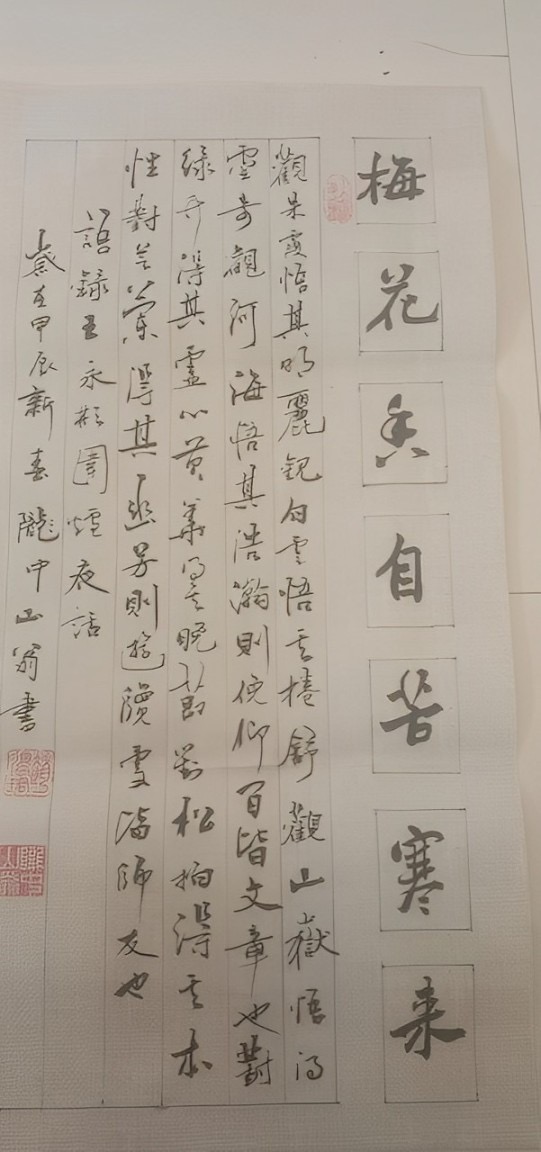 梅花香自苦寒来
觀朱霞悟其明麗觀白雲悟其捲舒觀山嶽悟得
靈奇觀河海悟其浩瀚則俯仰百皆文章也對
綠竹得其虛心黄華得其晚節對松柏得其本
性對芝蘭得其幽芳則遊覽處皆師友也
語錄王永彬圍爐夜話
歲在甲辰新春隴中山翁書